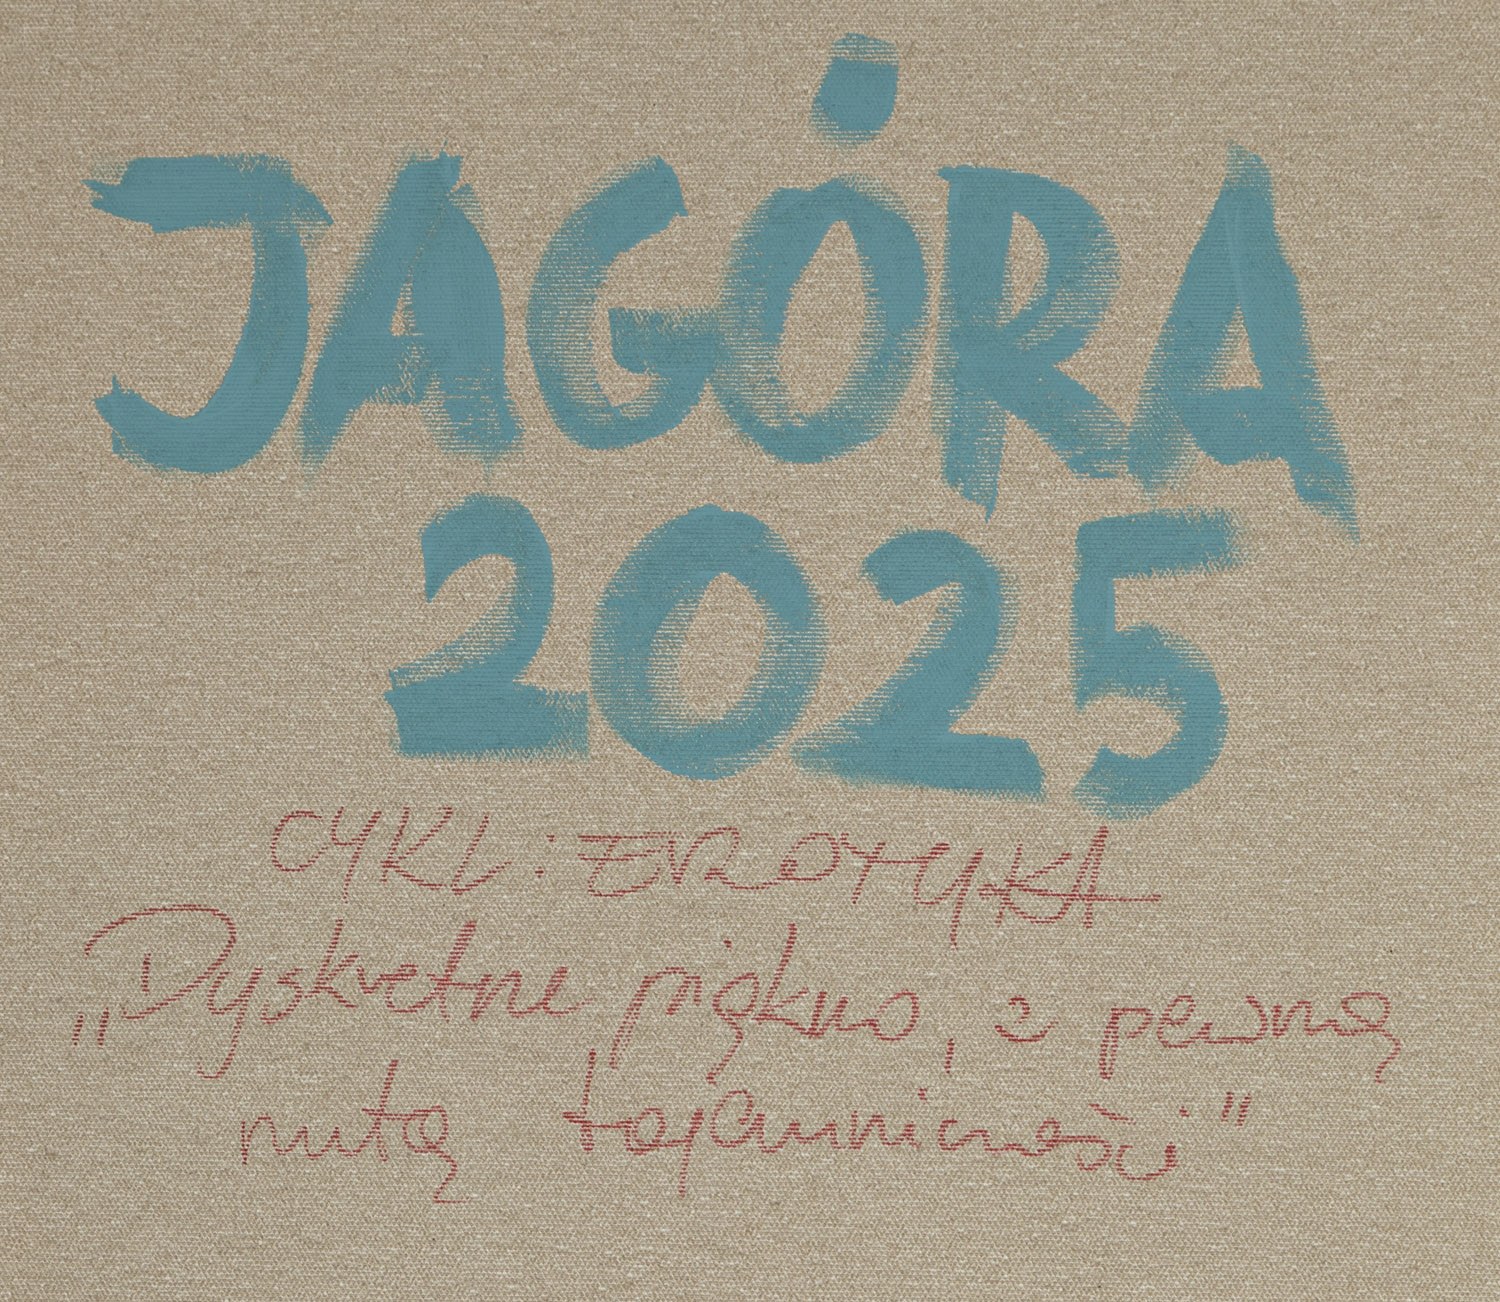 JAGÓRA
2025
CYKL: EROTYKA
„Dyskretne piękno, z pewną
nutą tajemniczości"